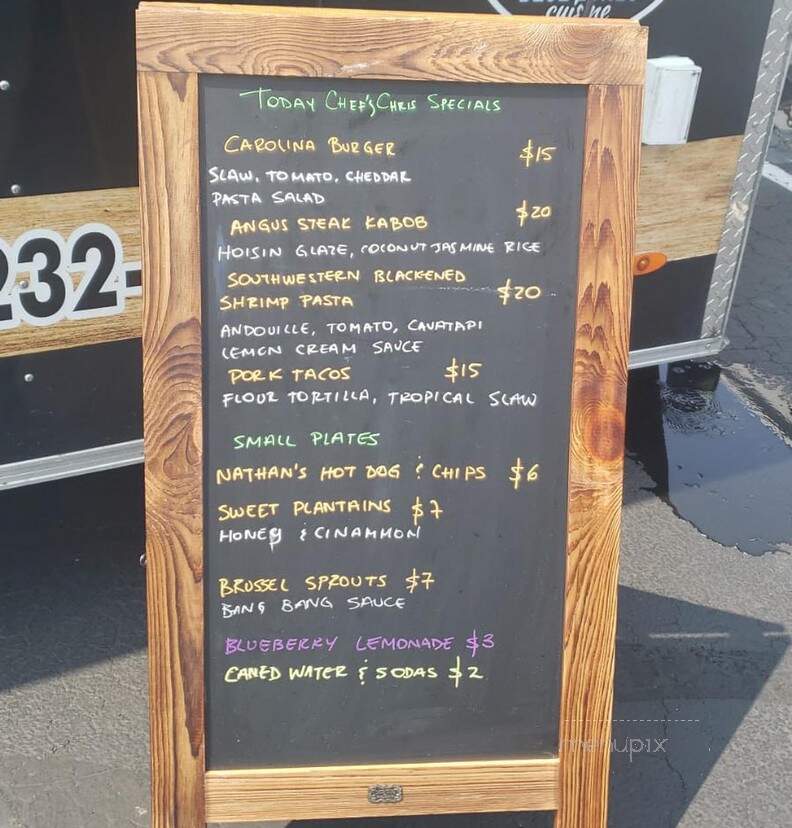 cuisine
232-
TODAY CHEF'S CHRIS SPECIALS
CAROLINA BURGER $15
SLAW, TOMATO, CHEDDAR
PASTA SALAD
ANGUS STEAK KABOB $20
HOISIN GLAZE, COCONUT JASMINE RICE
SOUTHWESTERN BLACKENED
SHRIMP PASTA $20
ANDOUILLE, TOMATO, CAVATAPI
LEMON CREAM SAUCE
PORK TACOS $15
FLOUR TORTILLA, TROPICAL SLAW
SMALL PLATES
NATHAN'S HOT DOG & CHIPS $6
SWEET PLANTAINS $7
HONEY & CINAMMON
BRUSSEL SPROUTS $7
BANG BANG SAUCE
BLUEBERRY LEMONADE $3
CANED WATER & SODAS $2
menupix